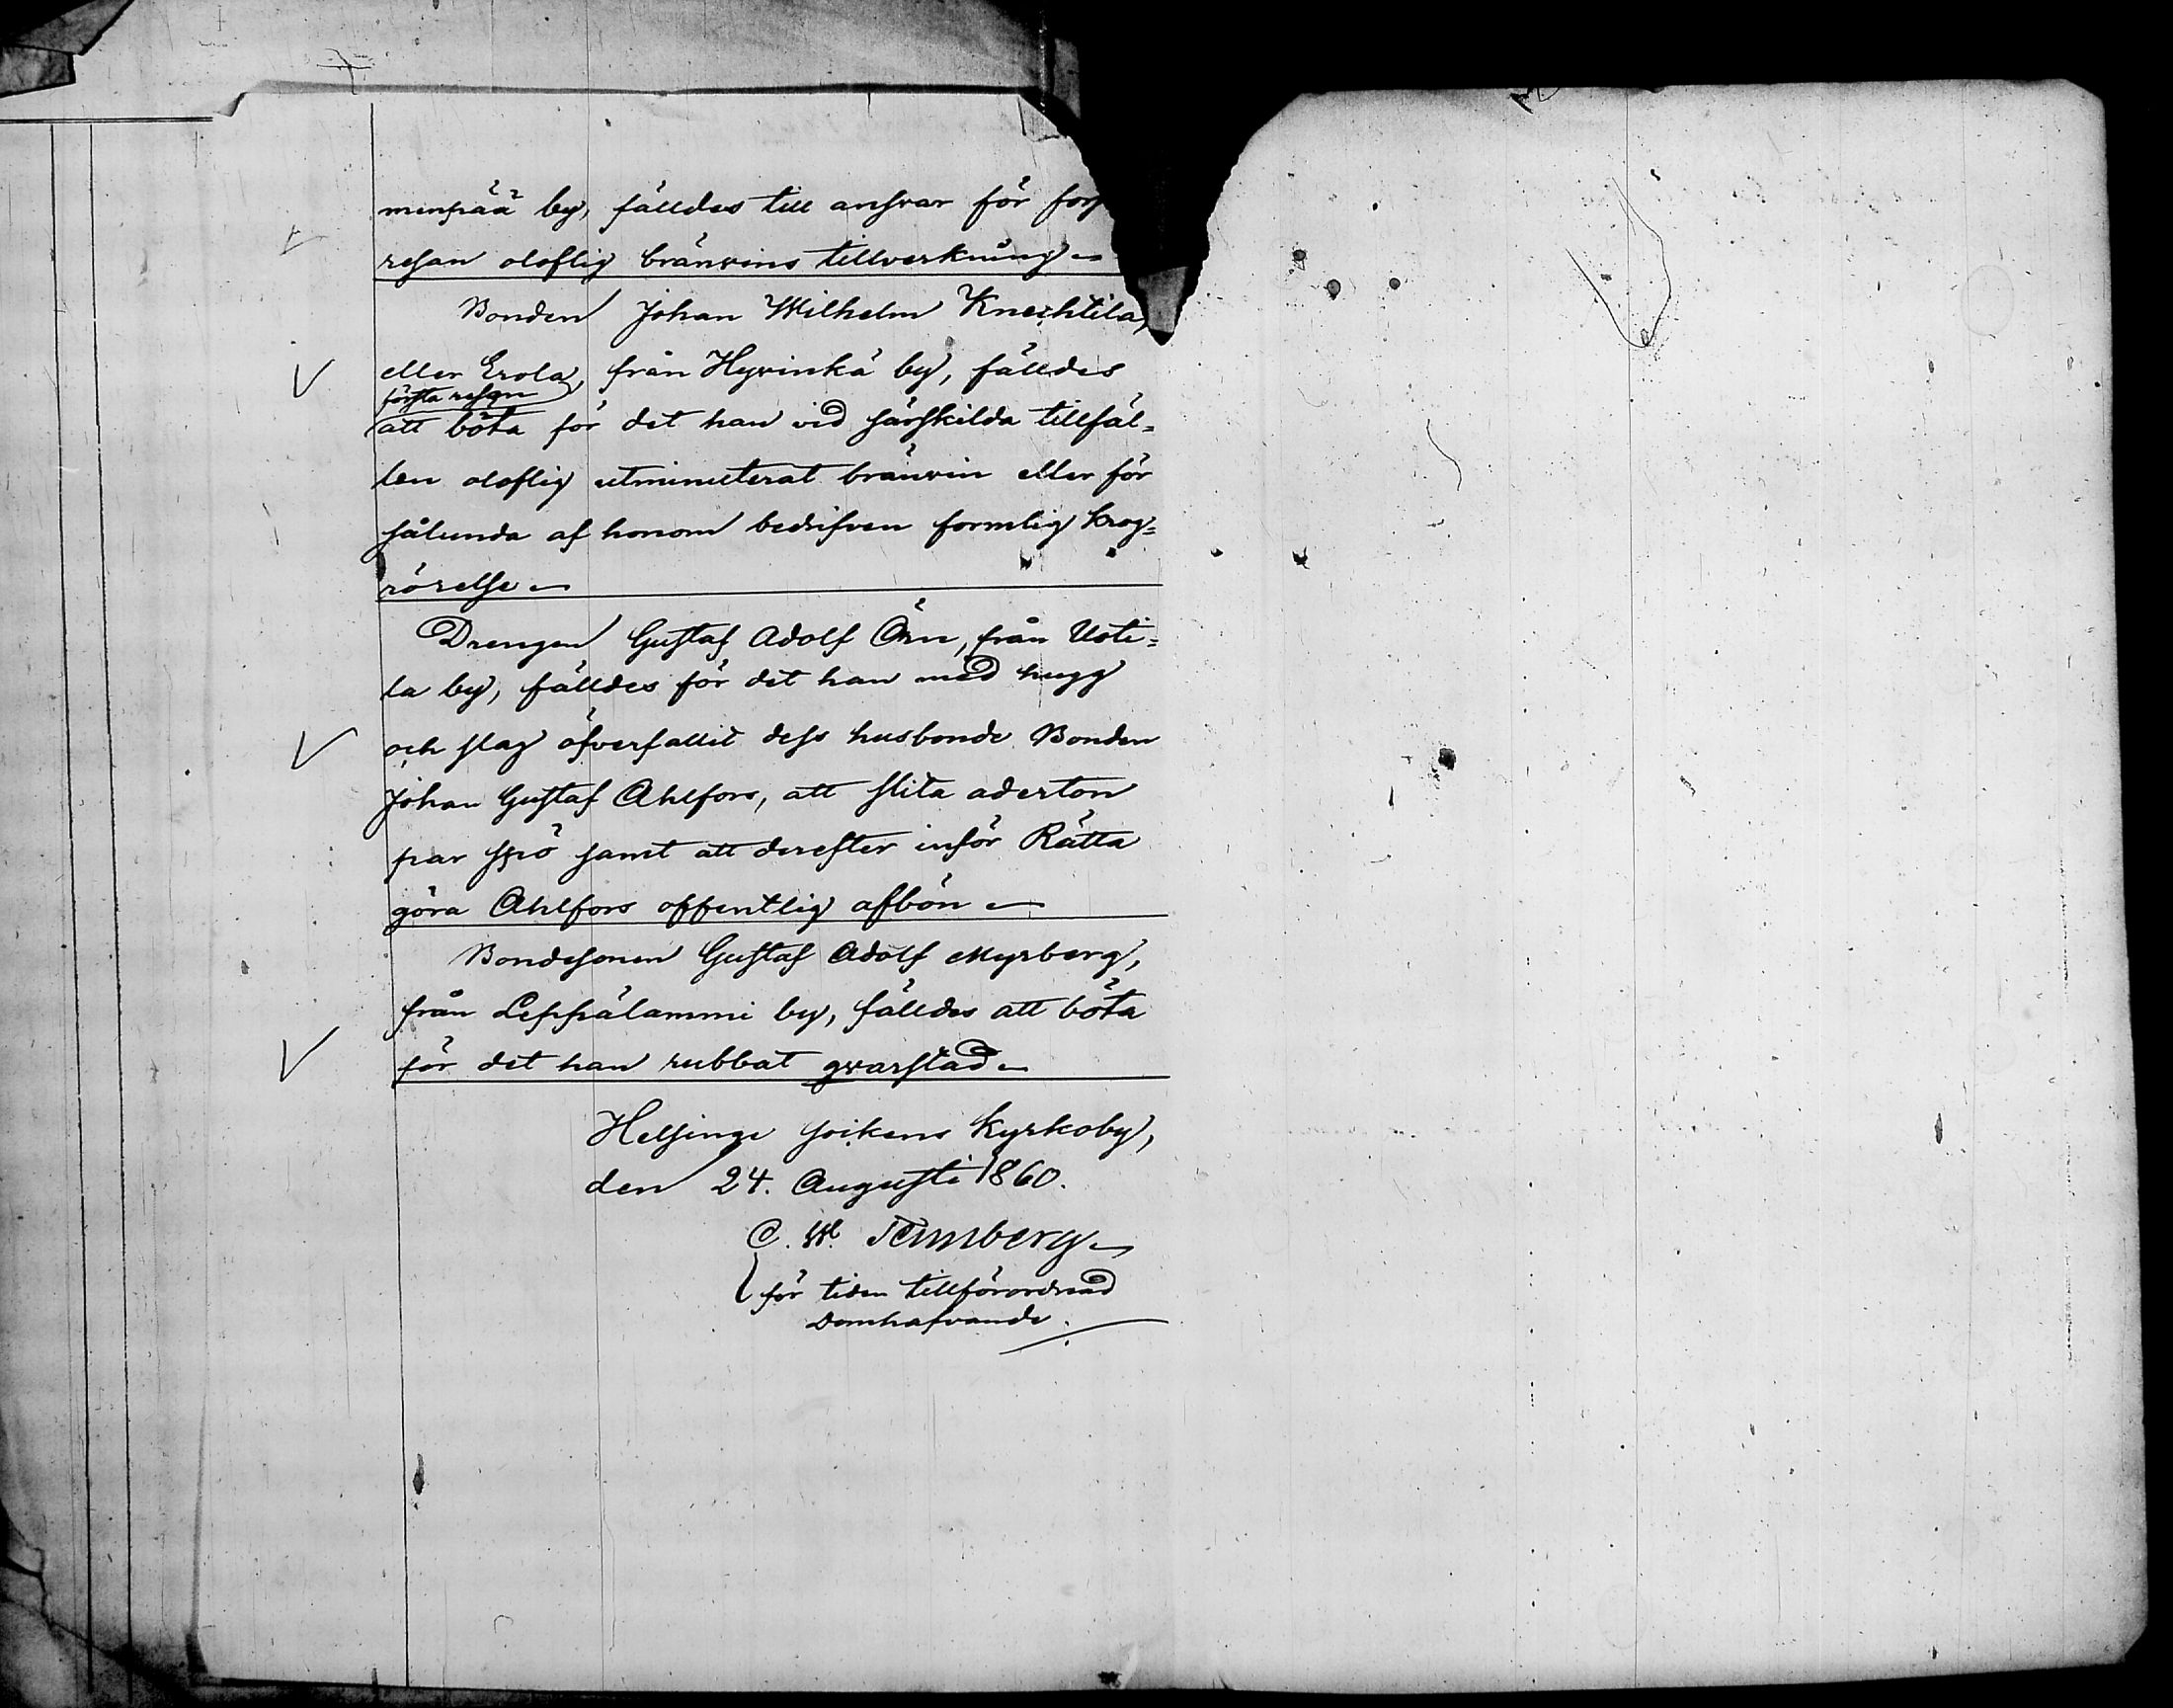 menpää by, fälldes till ansvar för förs
resan oloflig bränvins tillverkning
Bonden Johan Wilhelm Knechtila,
eller Erola, från Hyvinkä by, fälldes
första resan
att böta för det han vid särskilda tillfäl=
len oloflig utminuterat bränvin eller för
sålunda af honom bedrifven formlig krog=
rörelse
Drengen Gustaf Adolf Örn, från Uoti=
la by, fälldes för det han med hugg
och slag öfverfallit dess husbonde Bonden
Johan Gustaf Ahlfors, att slita aderton
par spö samt att derefter inför Rätta
göra Ahlfors offentlig afbön
Bondesonen Gustaf Adolf Myrberg,
från Leppälammi by, fälldes att böta
för det han rubbat qvarstad
Helsinge sokens Kyrkoby,
den 24. Augusti 1860.
C. W.
för tiden tillförordnad
Domhafvande.